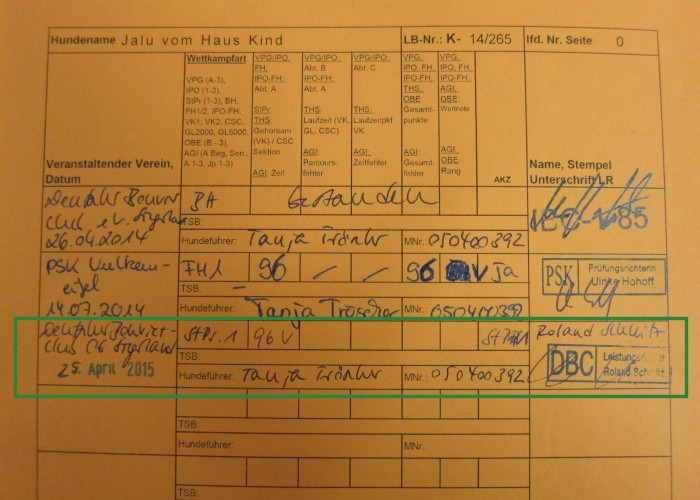 Hundename Jalu vom Haus Kind LB-Nr.: K- 14/265 lfd. Nr. Seite 0
Veranstaltender Verein,
Datum
Wettkampfart
VPG (A-3),
IPO (1-3),
StPr (1-3), BH,
FH1/2, IPO-FH,
VK1, VK2, CSC,
GL2000, GL5000,
OBE (B - 3),
AGI (A Beg, Sen.,
A 1-3, Jp 1-3)
VPG/IPO,
FH,
IPO-FH:
Abt. A
StPr:
THS:
Gehorsam
(VK) / CSC
Sektion
AGI: Zeit
VPG/IPO,
IPO-FH:
Abt. B
THS:
Laufzeit (VK,
GL, CSC)
AGI:
Parcours-
fehler
VPG/IPO:
Abt. C
THS:
Laufzeitpkt
VK
AGI:
Zeitfehler
VPG,
IPO, FH,
IPO-FH:
THS,
OBE:
Gesamt-
punkte
AGI:
Gesamt-
fehler
VPG,
IPO, FH,
IPO-FH,
AGI,
OBE:
Wertnote
AGI,
OBE:
Rang
AKZ
Name, Stempel
Unterschrift LR
Club e.V.
26.04.2014
BH Bestanden
TSB:
Hundeführer: Tanja MNr.: 050400392
85
PSK Vulkan-
eifel
14.07.2014
FH1 96 / / 96 V ja
TSB: –
Hundeführer: Tanja MNr.: 050400392
PSK Prüfungsrichterin
Ulrike Hohoff
Club
25. April 2015
StPr. 1 96 V
TSB:
Hundeführer: Tanja MNr.: 050400392
Roland Schmitz
DBC
Roland Schmitz
TSB:
Hundeführer: MNr.:
TSB: